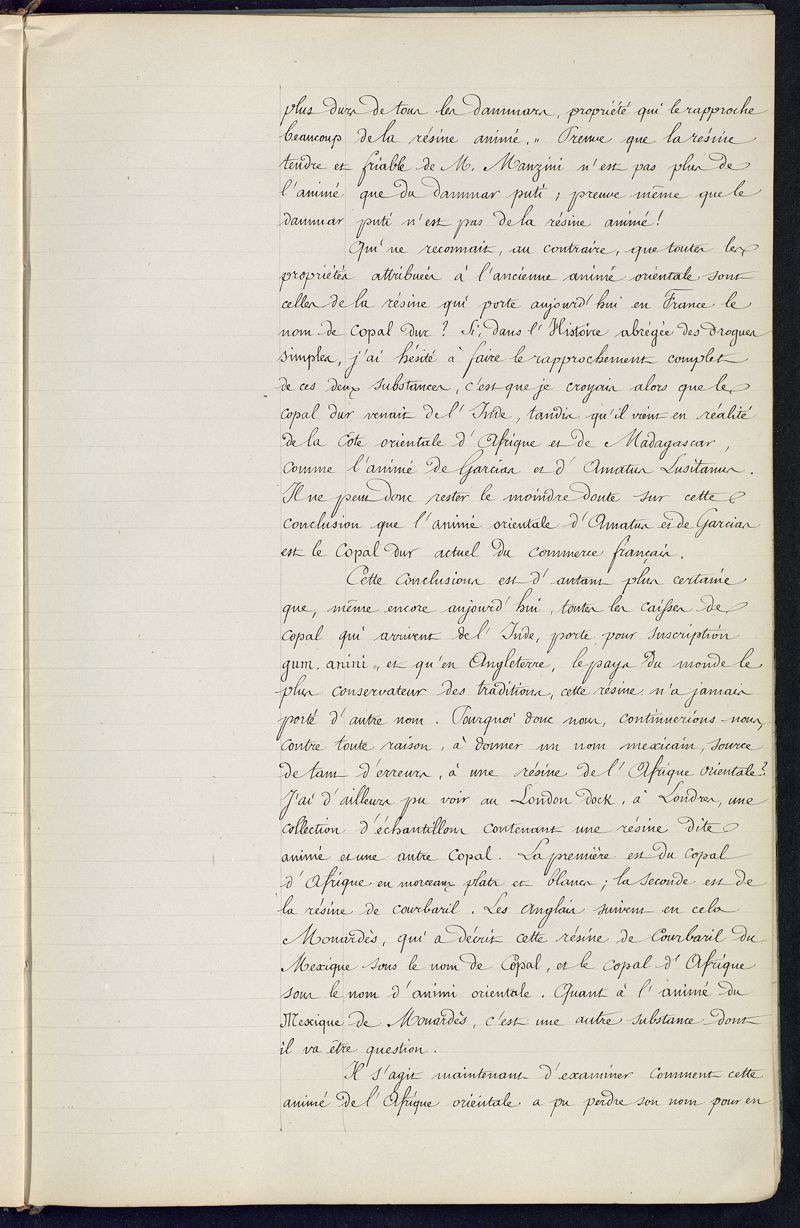 plus durs de tous les dammars, propriété qui le rapproche
beaucoup de la résine animé. " Preuve que la résine
tendre et friable de M. Manzini n'est pas plus de
l'animé que du dammar puti ; preuve même que le
dammar puti n'est pas de la résine animé !
Qui ne reconnait, au contraire, que toutes les
propriétés attribuées à l'ancienne animé orientale sont
celles de la résine qui porte aujourd'hui en France le
nom de Copal dur ? Si, dans l'Histoire abrégée des drogues
simples, j'ai hésité à faire le rapprochement complet
de ces deux substances, c'est que je croyais alors que le
copal dur venait de l'Inde, tandis qu'il vient en réalité
de la Côte orientale d'Afrique et de Madagascar,
comme l'animé de Garcias et d'Amatus Lusitanus.
Il ne peut donc rester le moindre doute sur cette
conclusion que l'animé orientale d'Amatus et de Garcias
est le Copal dur actuel du commerce français.
Cette conclusion est d'autant plus certaine
que, même encore aujourd'hui, toutes les caisses de
copal qui arrivent de l'Inde, porte pour suscription
gum. anini ", et qu'en Angleterre, le pays du monde le
plus conservateur des traditions, cette résine n'a jamais
porté d'autre nom. Pourquoi donc nous, continuerions-nous,
contre toute raison, à donner un nom mexicain, source
de tant d'erreurs, à une résine de l'Afrique orientale ?
J'ai d'ailleurs pu voir au London dock, à Londres, une
collection d'échantillons contenant une résine dite
animé et une autre Copal. La première est du copal
d'Afrique en morceaux plats et blancs ; la seconde est de
la résine de courbaril. Les Anglais suivent en cela
Monardès, qui a décrit cette résine de Courbaril du
Mexique sous le nom de Copal, et le copal d'Afrique
sous le nom d'animi orientale. Quant à l'animé du
Mexique de Monardès, c'est une autre substance dont
il va être question.
Il s'agit maintenant d'examiner comment cette
animé de l'Afrique orientale a pu perdre son nom pour en